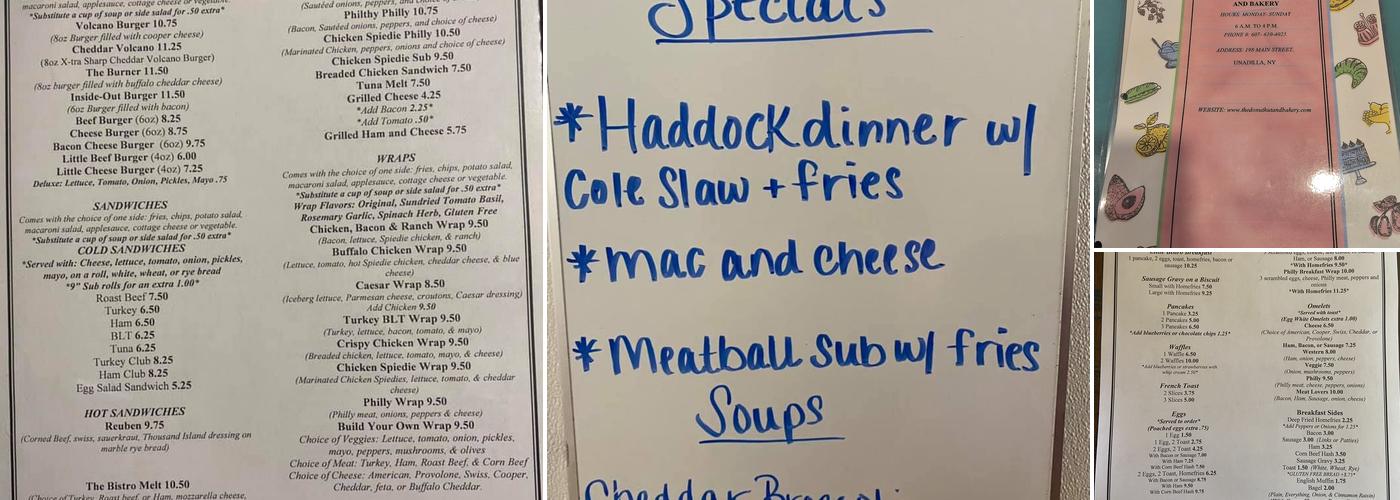 macaroni salad, applesauce, cottage cheese or vegetable.
*Substitute a cup of soup or side salad for .50 extra*
Volcano Burger 10.75
(8oz Burger filled with cooper cheese)
Cheddar Volcano 11.25
(8oz X-tra Sharp Cheddar Volcano Burger)
The Burner 11.50
(8oz burger filled with buffalo cheddar cheese)
Inside-Out Burger 11.50
(6oz Burger filled with bacon)
Beef Burger (6oz) 8.25
Cheese Burger (6oz) 8.75
Bacon Cheese Burger (6oz) 9.75
Little Beef Burger (4oz) 6.00
Little Cheese Burger (4oz) 7.25
Deluxe: Lettuce, Tomato, Onion, Pickles, Mayo .75
SANDWICHES
Comes with the choice of one side: fries, chips, potato salad,
macaroni salad, applesauce, cottage cheese or vegetable.
*Substitute a cup of soup or side salad for .50 extra*
COLD SANDWICHES
*Served with: Cheese, lettuce, tomato, onion, pickles,
mayo, on a roll, white, wheat, or rye bread
*9" Sub rolls for an extra 1.00*
Roast Beef 7.50
Turkey 6.50
Ham 6.50
BLT 6.25
Tuna 6.25
Turkey Club 8.25
Ham Club 8.25
Egg Salad Sandwich 5.25
HOT SANDWICHES
Reuben 9.75
(Corned Beef, swiss, sauerkraut, Thousand Island dressing on
marble rye bread)
The Bistro Melt 10.50
(Choice of Turkey, Roast beef, or Ham, mozzarella cheese,
(Sautéed onions, peppers, and choice of cheese)
Philthy Philly 10.75
(Bacon, Sautéed onions, peppers, and choice of cheese)
Chicken Spiedie Philly 10.50
(Marinated Chicken, peppers, onions and choice of cheese)
Chicken Spiedie Sub 9.50
Breaded Chicken Sandwich 7.50
Tuna Melt 7.50
Grilled Cheese 4.25
*Add Bacon 2.25*
*Add Tomato .50*
Grilled Ham and Cheese 5.75
WRAPS
Comes with the choice of one side: fries, chips, potato salad,
macaroni salad, applesauce, cottage cheese or vegetable.
*Substitute a cup of soup or side salad for .50 extra*
Wrap Flavors: Original, Sundried Tomato Basil,
Rosemary Garlic, Spinach Herb, Gluten Free
Chicken, Bacon & Ranch Wrap 9.50
(Bacon, lettuce, Spiedie chicken, & ranch)
Buffalo Chicken Wrap 9.50
(Lettuce, tomato, hot Spiedie chicken, cheddar cheese, & blue
cheese)
Caesar Wrap 8.50
(Iceberg lettuce, Parmesan cheese, croutons, Caesar dressing)
Add Chicken 9.50
Turkey BLT Wrap 9.50
(Turkey, lettuce, bacon, tomato, & mayo)
Crispy Chicken Wrap 9.50
(Breaded chicken, lettuce, tomato, mayo, & cheese)
Chicken Spiedie Wrap 9.50
(Marinated Chicken Spiedies, lettuce, tomato, & cheddar
cheese)
Philly Wrap 9.50
(Philly meat, onions, peppers & cheese)
Build Your Own Wrap 9.50
Choice of Veggies: Lettuce, tomato, onion, pickles,
mayo, peppers, mushrooms, & olives
Choice of Meat: Turkey, Ham, Roast Beef, & Corn Beef
Choice of Cheese: American, Provolone, Swiss, Cooper,
Cheddar, feta, or Buffalo Cheddar.
Specials
*Haddock dinner w/
Cole Slaw + fries
*mac and cheese
*Meatball sub w/ fries
Soups
Cheddar Broccoli
AND BAKERY
HOURS: MONDAY- SUNDAY
6 A.M. TO 4 P.M.
PHONE #: 607- 610-4023
ADDRESS: 198 MAIN STREET.
UNADILLA, NY
WEBSITE: www.thedonuthutandbakery.com
1 pancake, 2 eggs, toast, homefries, bacon or
sausage 10.25
Sausage Gravy on a Biscuit
Small with Homefries 7.50
Large with Homefries 9.25
Pancakes
1 Pancake 3.25
2 Pancakes 5.00
3 Pancakes 6.50
*Add blueberries or chocolate chips 1.25*
Waffles
1 Waffle 6.50
2 Waffles 10.00
*Add blueberries or strawberries with
whip cream 2.50*
French Toast
2 Slices 3.75
3 Slices 5.00
Eggs
*Served to order*
(Poached eggs extra .75)
1 Egg 1.50
1 Egg, 2 Toast 2.75
With Bacon or Sausage 7.00
With Ham 7.25
With Corn Beef Hash 7.50
2 Eggs, 2 Toast 4.25, Homefries 6.25
With Bacon or Sausage 8.75
With Ham 9.50
With Corn Beef Hash 9.75
Ham, or Sausage 8.00
*With Homefries 9.50*
Philly Breakfast Wrap 10.00
3 scrambled eggs, cheese, Philly meat, peppers and
onions
*With Homefries 11.25*
Omelets
*Served with toast*
(Egg White Omelets extra 1.00)
Cheese 6.50
(Choice of American, Cooper, Swiss, Cheddar, or
Provolone)
Ham, Bacon, or Sausage 7.25
Western 8.00
(Ham, onion, peppers, cheese)
Veggie 7.50
(Onion, mushrooms, peppers)
Philly 9.50
(Philly meat, cheese, peppers, onions)
Meat Lovers 10.00
(Bacon, Ham, Sausage, onion, cheese)
Breakfast Sides
Deep Fried Homefries 2.25
*Add Peppers or Onions for 1.25*
Bacon 3.00
Sausage 3.00 (Links or Patties)
Ham 3.25
Corn Beef Hash 3.50
Sausage Gravy 3.25
Toast 1.50 (White, Wheat, Rye)
*GLUTEN FREE BREAD +3.75*
English Muffin 1.75
Bagel 2.00
(Plain, Everything, Onion, & Cinnamon Raisin)